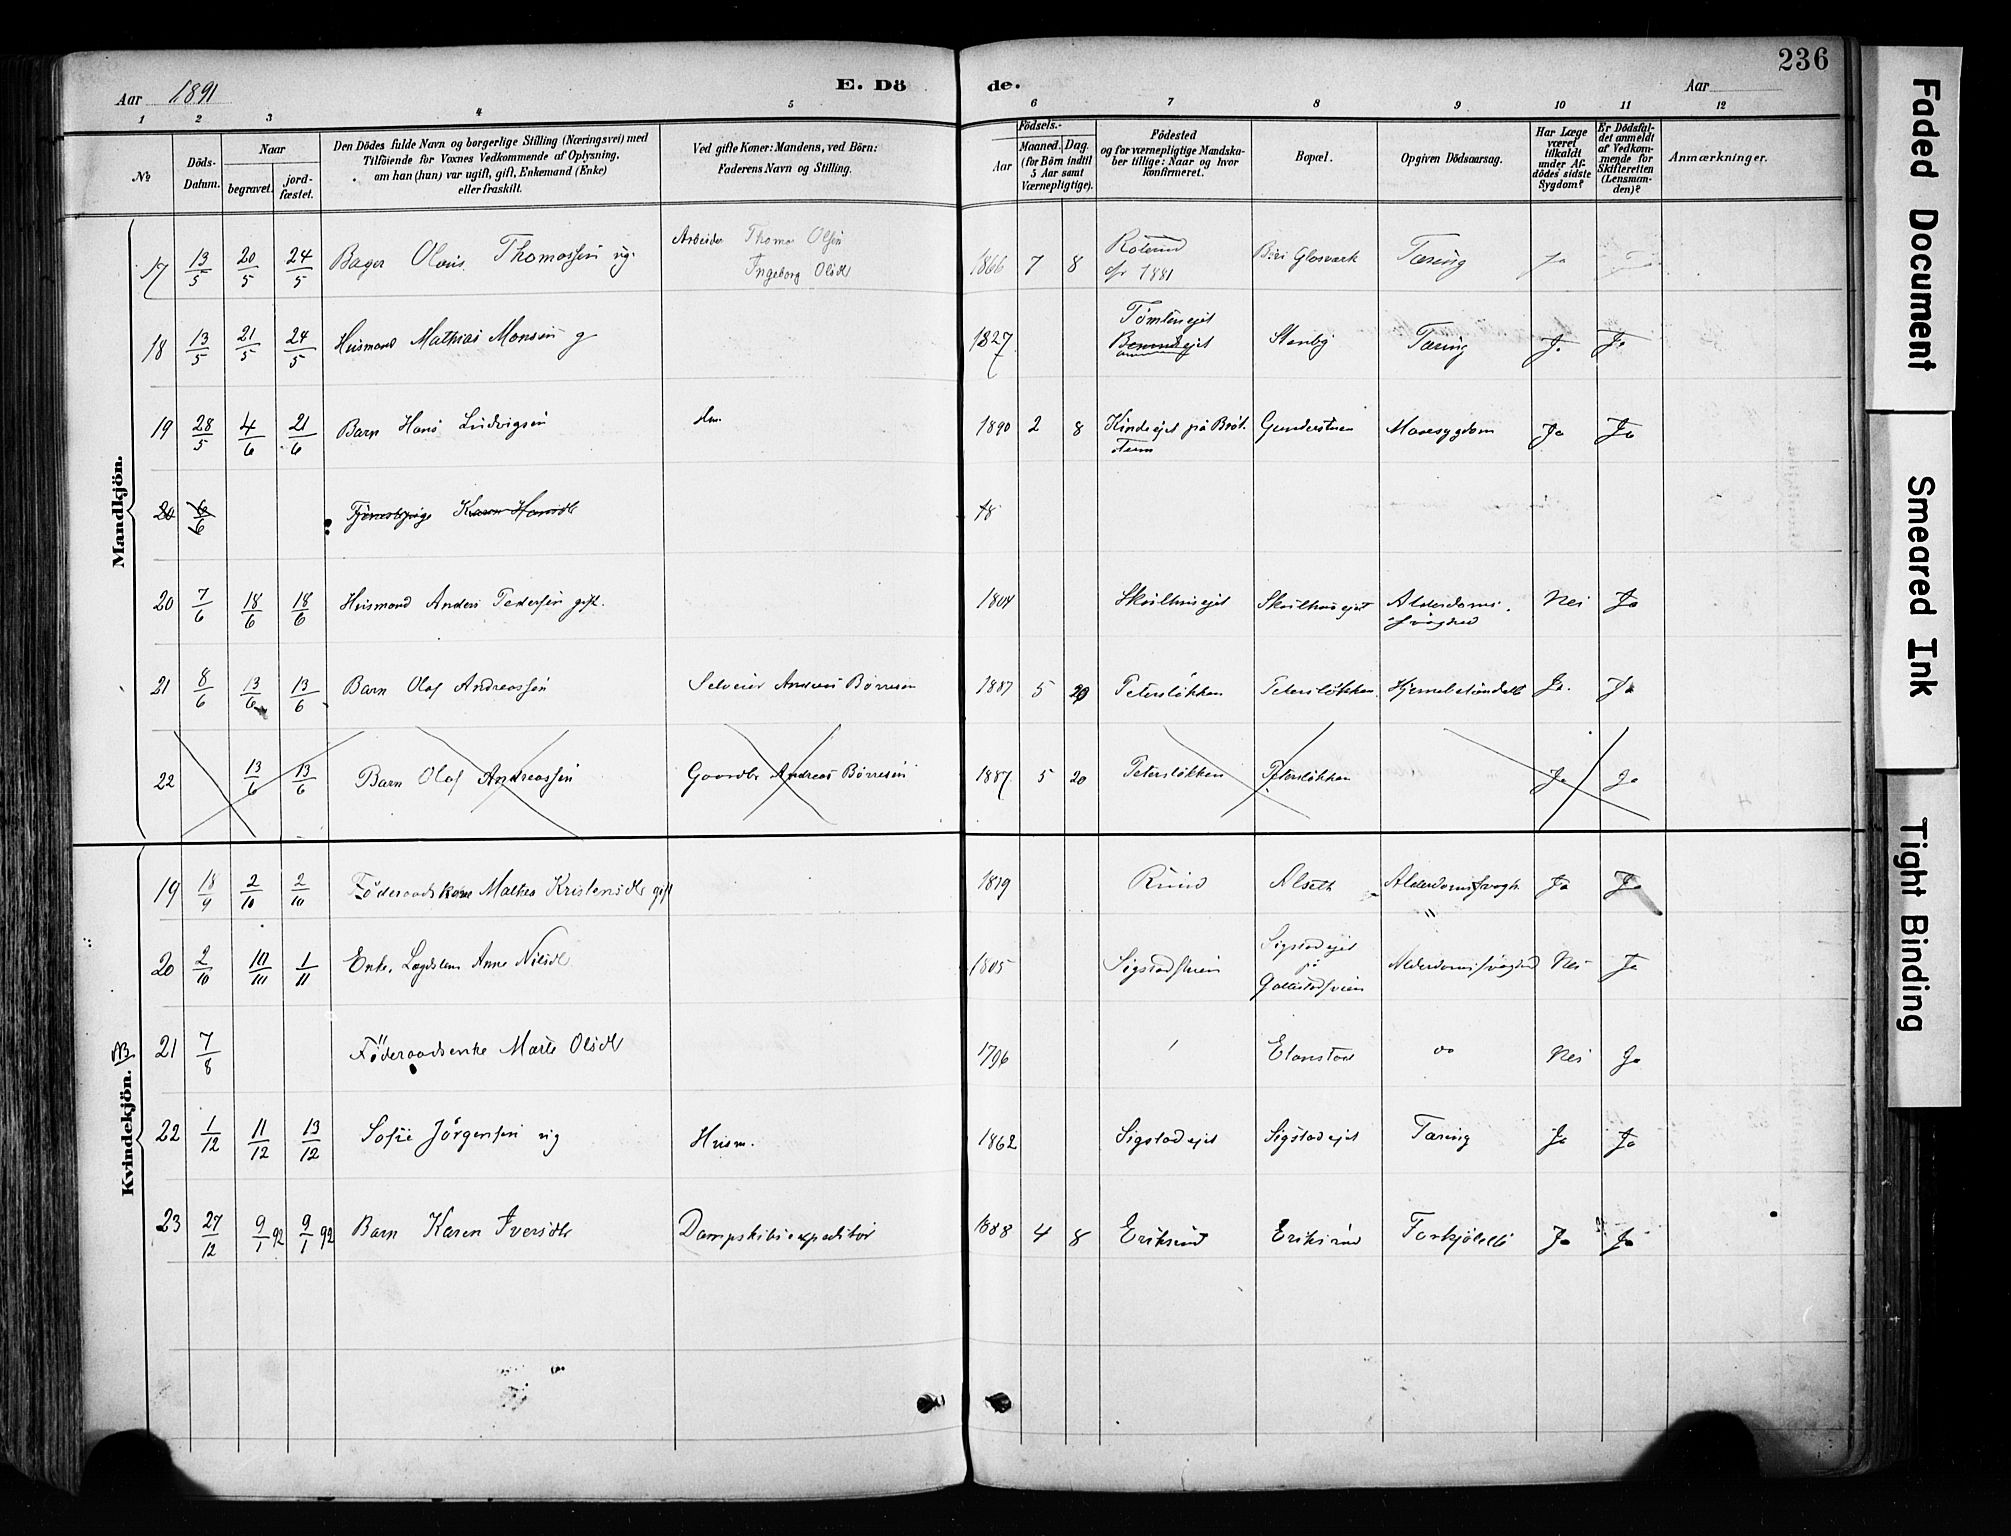 236
Aar 1891
E. Dö
de.
Aar
1 2 3 4 5 6 7 8 9 10 11 12
№
Döds-Datum.
Naar
begravet.
jord-fæstet.
Den Dödes fulde Navn og borgerlige Stilling (Næringsvei) med
Tilföiende for Voxnes Vedkommende af Oplysning,
om han (hun) var ugift, gift, Enkemand (Enke)
eller fraskilt.
Ved gifte Koner: Mandens, ved Börn:
Faderens Navn og Stilling.
Födsels-
Aar
Maaned. Dag.
(for Börn indtil
5 Aar samt
Værnepligtige).
Födested
og for værnepligtige Mandska-
ber tillige: Naar og hvor
konfirmeret.
Bopæl.
Opgiven Dödsaarsag.
Har Læge
været
tilkaldt
under Af-
dödes sidste
Sygdom?
Er Dödsfal-
det anmeldt
af Vedkom-
mende for
Skifteretten
(Lensman-
den)?
Anmærkninger.
Mandkjön.
17 13/5 20/5 24/5 Bager Olaus Thomassen ug. Arbeider Thomas Olsen 1866 7 8 Roterud Biri Glasværk Tæring Ja Ja
Ingeborg Olsdt cfr 1881
Tømteneiet
18 13/5 21/5 24/5 Husmand Mathias Monsen g 1827 Stenby Tæring Ja Ja
19 28/5 4/6 21/6 Barn Hans Ludvigsen 1890 2 8 Mavesygdom Ja Ja
20 6/6 Tjenestepige Karen Hansdt 18
20 7/6 18/6 18/6 Husmand Anders Pedersen gift. 1804 Skulhuseiet Skulhuseiet Alderdoms- Nei Ja
svaghed
21 8/6 13/6 13/6 Barn Olaf Andreassen Selveier Andreas Børresen 1887 5 20 Petersløkken Petersløkken Hjernebetændelse Ja. Ja
22 13/6 13/6 Barn Olaf Andreassen Gaardbr Andreas Børresen 1887 5 20 Petersløkken Petersløkken Ja Ja
Kvindekjön.
NB
19 18/9 2/10 2/10 Föderaadskone Mathea Kristensdt gift 1819 Ruud Alseth Alderdomssvagh. Ja Ja
20 2/10 10/10 1/11 Enke, Lægdslem Anne Nilsdt 1805 Sigstadsveen Sigstadeiet Alderdomssvaghed Nei Ja
på
21 7/8 Föderaadsenke Marte Olsdt 1796 Nei Ja
22 1/12 11/12 13/12 Sofie Jörgensen ug Husm. 1862 Sigstadeiet Sigstadeiet Tæring Ja Ja
23 27/12 9/1 92 9/1 92 Barn Karen Iversdt Dampskibsexpeditör 1888 4 8 Eriksrud Eriksrud Forkjölelse Ja Ja
Faded Document
Smeared Ink
Tight Binding